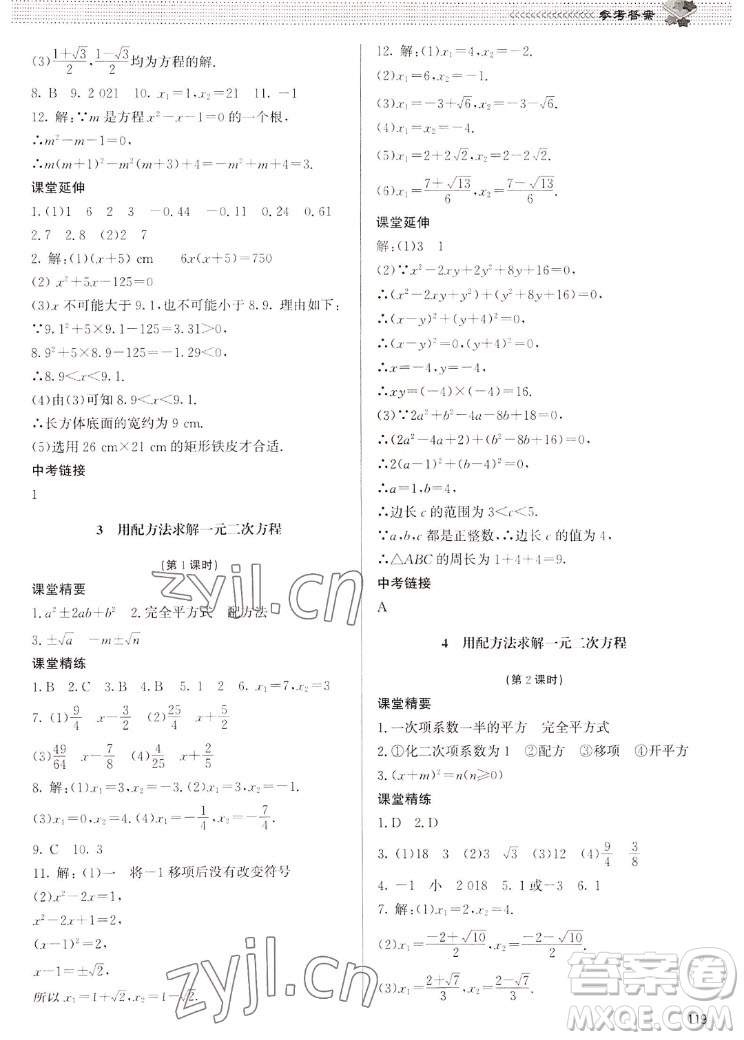 参考答案
(3)(1+√3)/2, (1−√3)/2均为方程的解.
8. B 9. 2 021 10. x₁=1, x₂=21 11. −1
12. 解:∵m是方程x²−x−1=0的一个根,
∴m²−m−1=0,
∴m(m+1)²−m²(m+3)+4=−m²+m+4=3.
课堂延伸
1. (1)1 6 2 3 −0.44 −0.11 0.24 0.61
2.7 2.8 (2)2 7
2. 解:(1)(x+5) cm 6x(x+5)=750
(2) x²+5x−125=0
(3)x不可能大于9.1,也不可能小于8.9. 理由如下:
∵9.1²+5×9.1−125=3.31>0,
8.9²+5×8.9−125=−1.29<0,
∴8.9<x<9.1.
(4)由(3)可知8.9<x<9.1,
∴长方体底面的宽约为9 cm.
(5)选用26 cm×21 cm的矩形铁皮才合适.
中考链接
1
3 用配方法求解一元二次方程
(第1课时)
课堂精要
1. a²±2ab+b² 2. 完全平方式 配方法
3. ±√a −m±√n
课堂精练
1. B 2. C 3. B 4. B 5. −2 6. x₁=7, x₂=3
7. (1)9/4 x−3/2 (2)25/4 x+5/2
(3)49/64 x−7/8 (4)4/25 x+2/5
8. 解:(1)x₁=3, x₂=−5. (2)x₁=0, x₂=4.
(3)x₁=0, x₂=−1. (4)x₁=−1/4, x₂=−9/4.
9. C 10. 3
11. 解:(1)一 将−1移项后没有改变符号
(2)x²−2x=1,
x²−2x+1=2,
(x−1)²=2,
x−1=±√2,
所以x₁=1+√2, x₂=1−√2.
12. 解:(1)x₁=1, x₂=−7.
(2)x₁=6, x₂=−4.
(3)x₁=−3+√6, x₂=−3−√6.
(4)x₁=1, x₂=2.
(5)x₁=2+2√2, x₂=2−2√2.
(6)x₁=(7+√13)/6, x₂=(7−√13)/6.
课堂延伸
解:(1)3 1
(2)∵x²−2xy+2y²+8y+16=0,
∴(x²−2xy+y²)+(y²+8y+16)=0,
∴(x−y)²+(y+4)²=0,
∴x−y=0, y+4=0,
∴x=−4, y=−4,
∴xy=(−4)×(−4)=16.
(3)∵2a²+b²−4a−8b+18=0,
∴(2a²−4a+2)+(b²−8b+16)=0,
∴2(a−1)²+(b−4)²=0,
∴a=1, b=4,
∴边长c的范围为3<c<5.
∵a, b, c都是正整数,∴边长c的值为4,
∴△ABC的周长为1+4+4=9.
中考链接
A
4 用配方法求解一元二次方程
(第2课时)
课堂精要
1. 一次项系数一半的平方 完全平方式
2. ①化二次项系数为1 ②配方 ③移项 ④开平方
3. (x+m)²=n(n≥0)
课堂精练
1. D 2. D
3. (1)18 3 (2)3 √3 (3)12 9/4 3/8
4. −1 小 2 018 5. 1或−3 6. 1
7. 解:(1)x₁=2, x₂=4.
(2)x₁=(−2+√10)/2, x₂=(−2−√10)/2.
(3)x₁=(2+√7)/3, x₂=(2−√7)/3.
119
zyjl.cn
zyjl.cn
答案圈